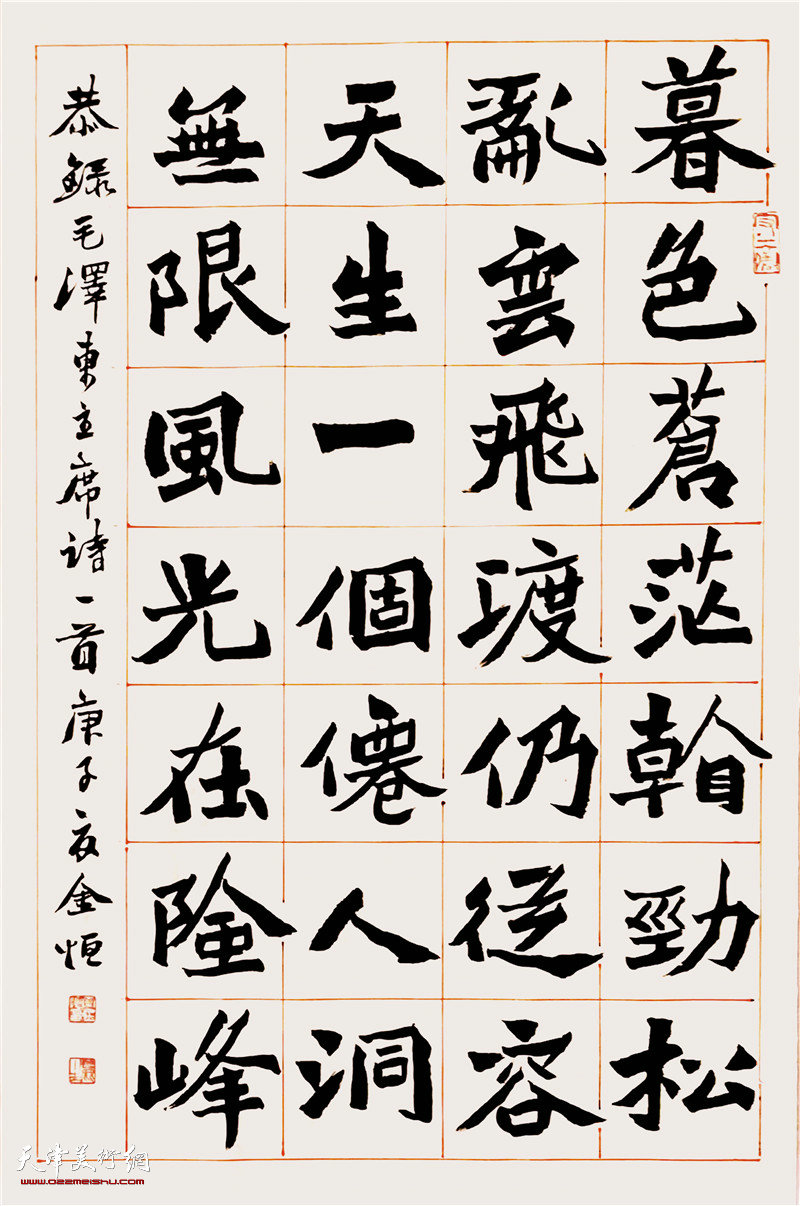 暮色蒼茫看勁松
亂雲飛渡仍從容
天生一個僊人洞
無限風光在險峰
恭錄毛澤東主席詩一首庚子夏金恒
天津美術網
www.022meishu.com